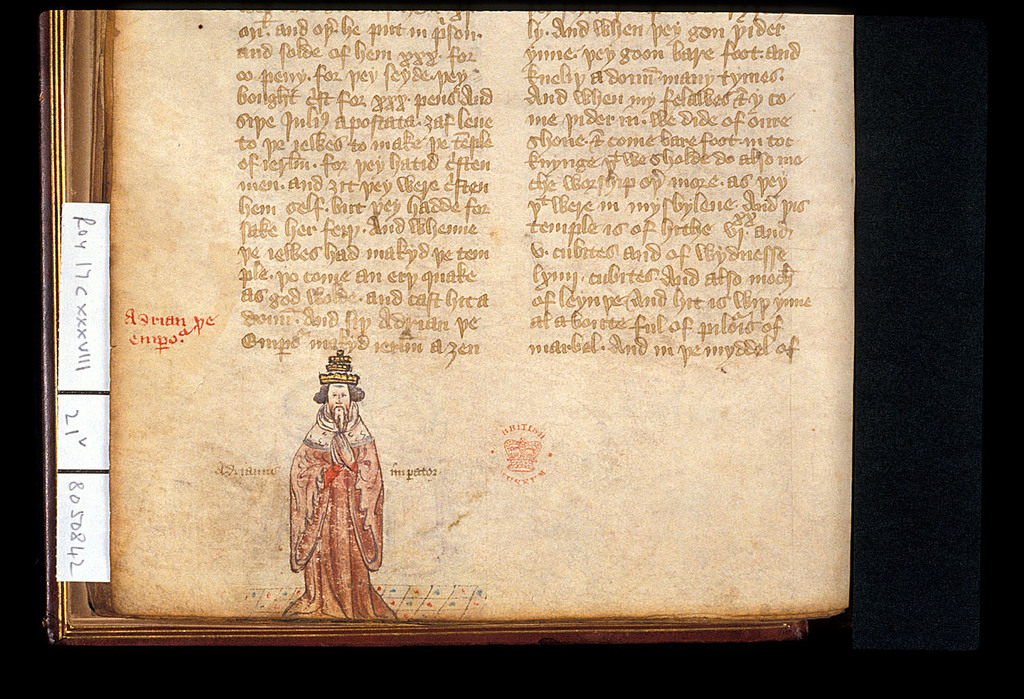 on. and oþ he put in pson.
and solde of hem xxx. for
oo peny. for þey seyde. þey
bought cst for xxx. pens And
siþe Julius apostata. zaf leue
to þe iewes to make þe temple
of ierlm. for þey hatid csten
men. and zit þey were csten
hem self. but þey hadde for
sake her fey. And whenne
þe iewes had makyd þe tem
ple. þo come an erþ quake
as god wolde. and cast hit a
doun. And siþ Adrian þe
Empo makyd ierlm a zen
ly. And when þey gon þider
ynne. þey goon bare foot. and
knely a doun many tymes.
And when my felawes & y co
me þider in. we dide of oure
shone. & come bare foot. in to
þynge þt we sholde do also mo
che worship oþ more. as þey
þt were in mysbylene. And þis
temple is of hithe. and
v. cubites and of wydnesse
lxiiij. cubites. And also moch
of leynþe. And hit is wiþ ynne
al a boute ful of pilous of
marbel. And in þe myddel of
Adrian þe
empo
Adrianus imperator
BRITISH
MUSEUM
Roy 17 C XXXVIII
21v
8050842